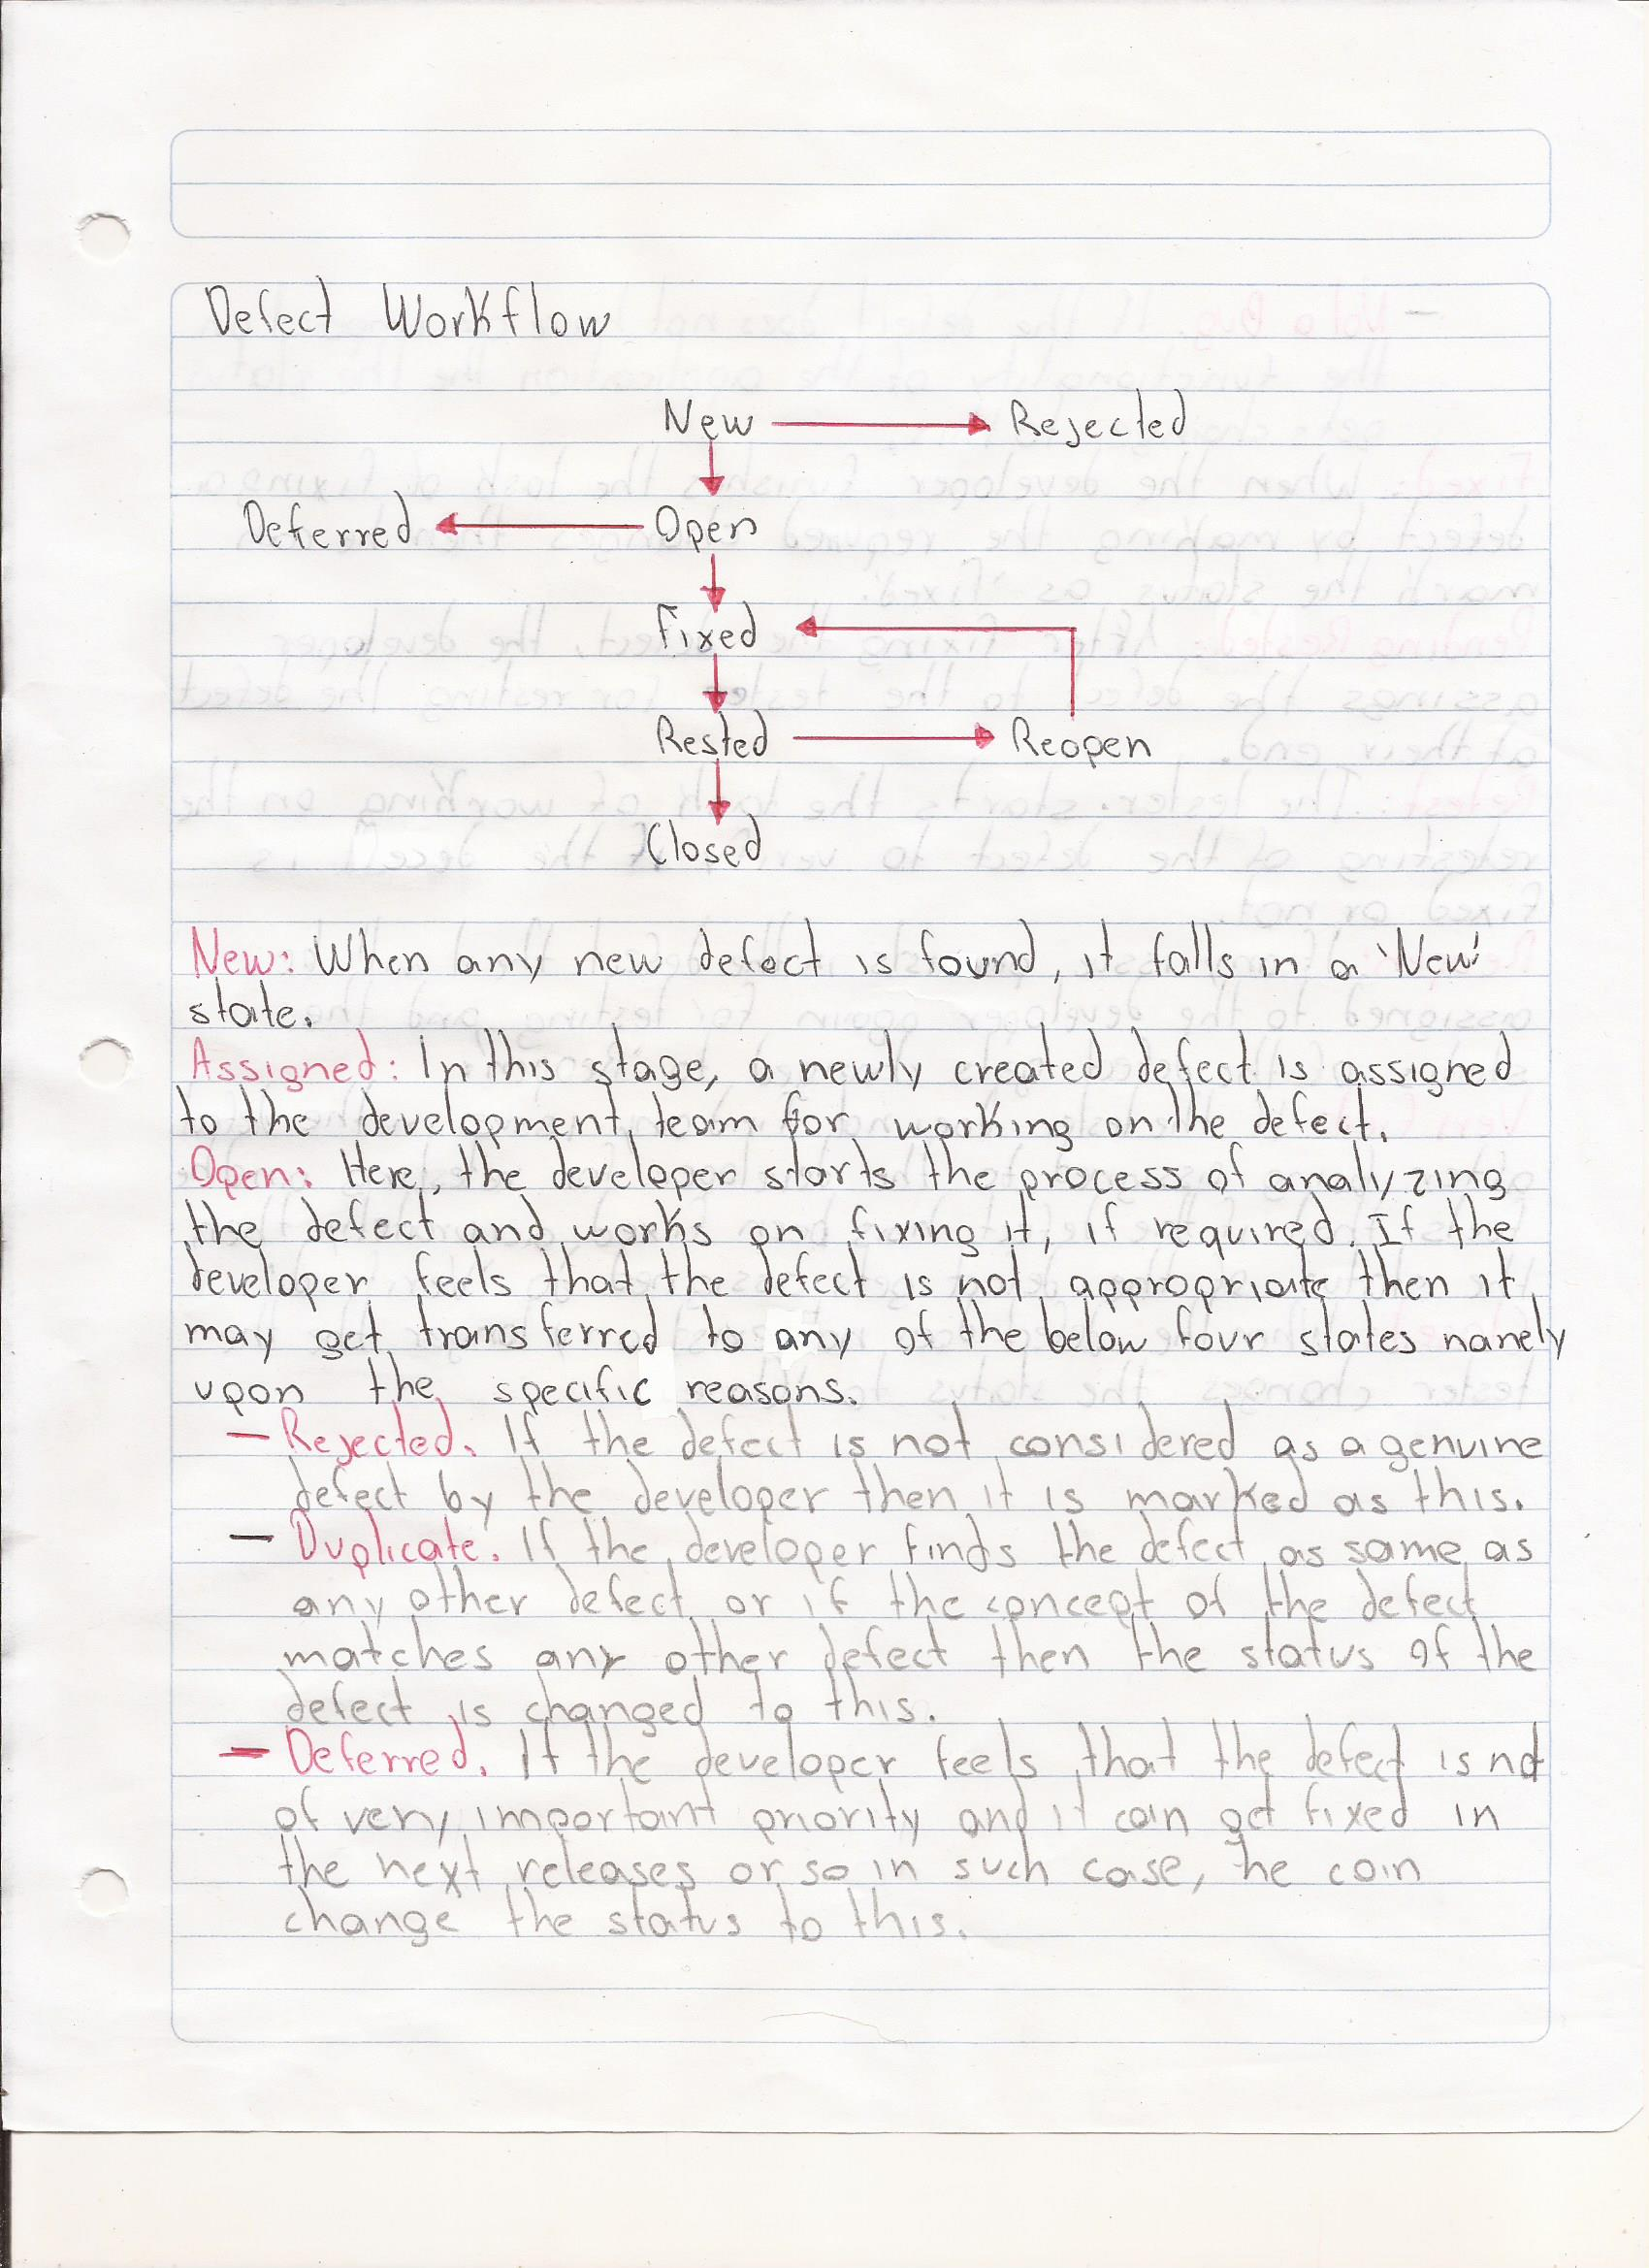 Defect Workflow
New Rejected
Deferred Open
Fixed
Rested Reopen
Closed
New: When any new defect is found, it falls in a 'New'
state.
Assigned: In this stage, a newly created defect is assigned
to the development team for working on the defect.
Open: Here, the developer starts the process of analyzing
the defect and works on fixing it, if required. If the
developer feels that the defect is not appropriate then it
may get transferred to any of the below four states namely
upon the specific reasons.
- Rejected. If the defect is not considered as a genuine
defect by the developer then it is marked as this.
- Duplicate. If the developer finds the defect as same as
any other defect or if the concept of the defect
matches any other defect then the status of the
defect is changed to this.
- Deferred. If the developer feels that the defect is not
of very important priority and it can get fixed in
the next releases or so in such case, he can
change the status to this.